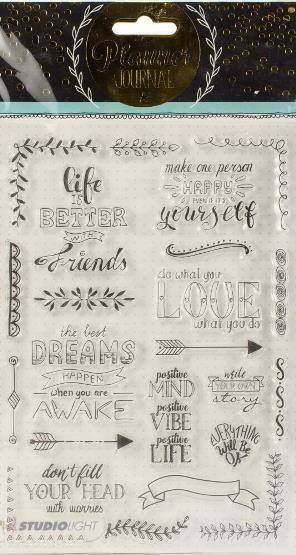 Planner
JOURNAL
life
IS
BETTER
WITH
friends
make one person
HAPPY
EVEN IF IT'S
yourself
do what you
LOVE
what you do
the best
DREAMS
HAPPEN
when you are
AWAKE
positive
MIND
positive
VIBE
positive
LIFE
write
YOUR OWN
story
EVERYTHING
Will Be
OK
don't fill
YOUR HEAD
with worries
STUDIOLIGHT